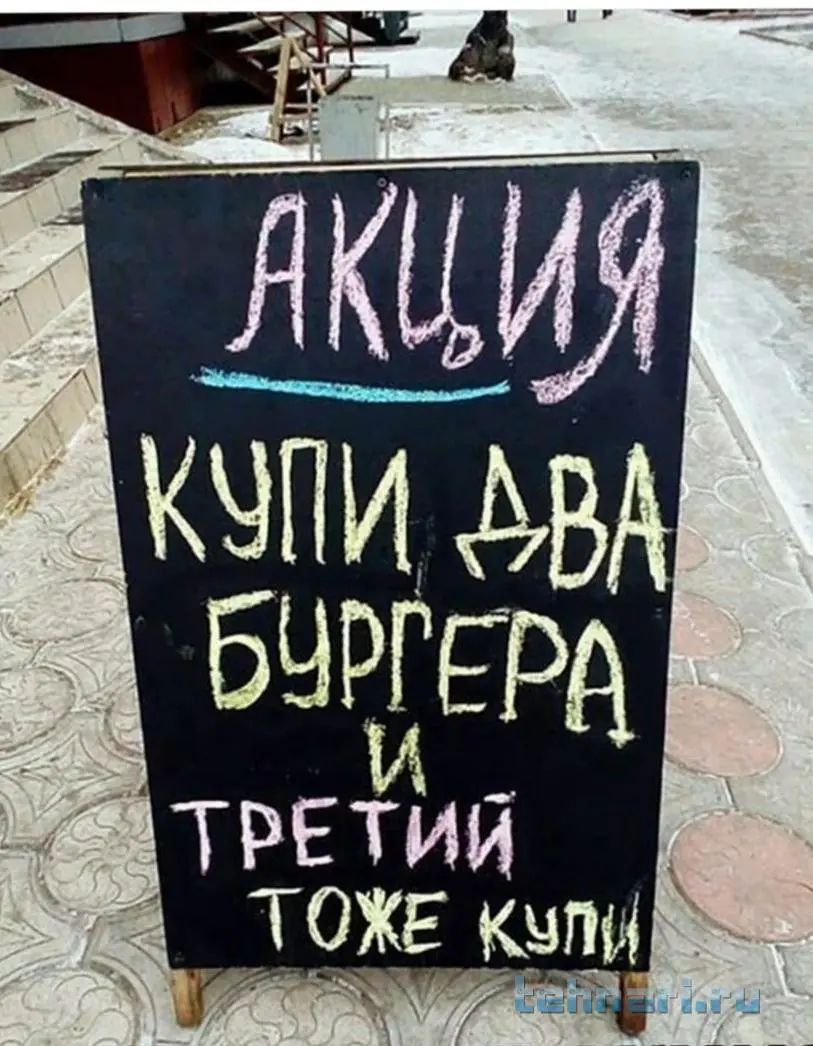 АКЦИЯ
КУПИ ДВА
БУРГЕРА
И
ТРЕТИЙ
ТОЖЕ КУПИ
tehnari.ru